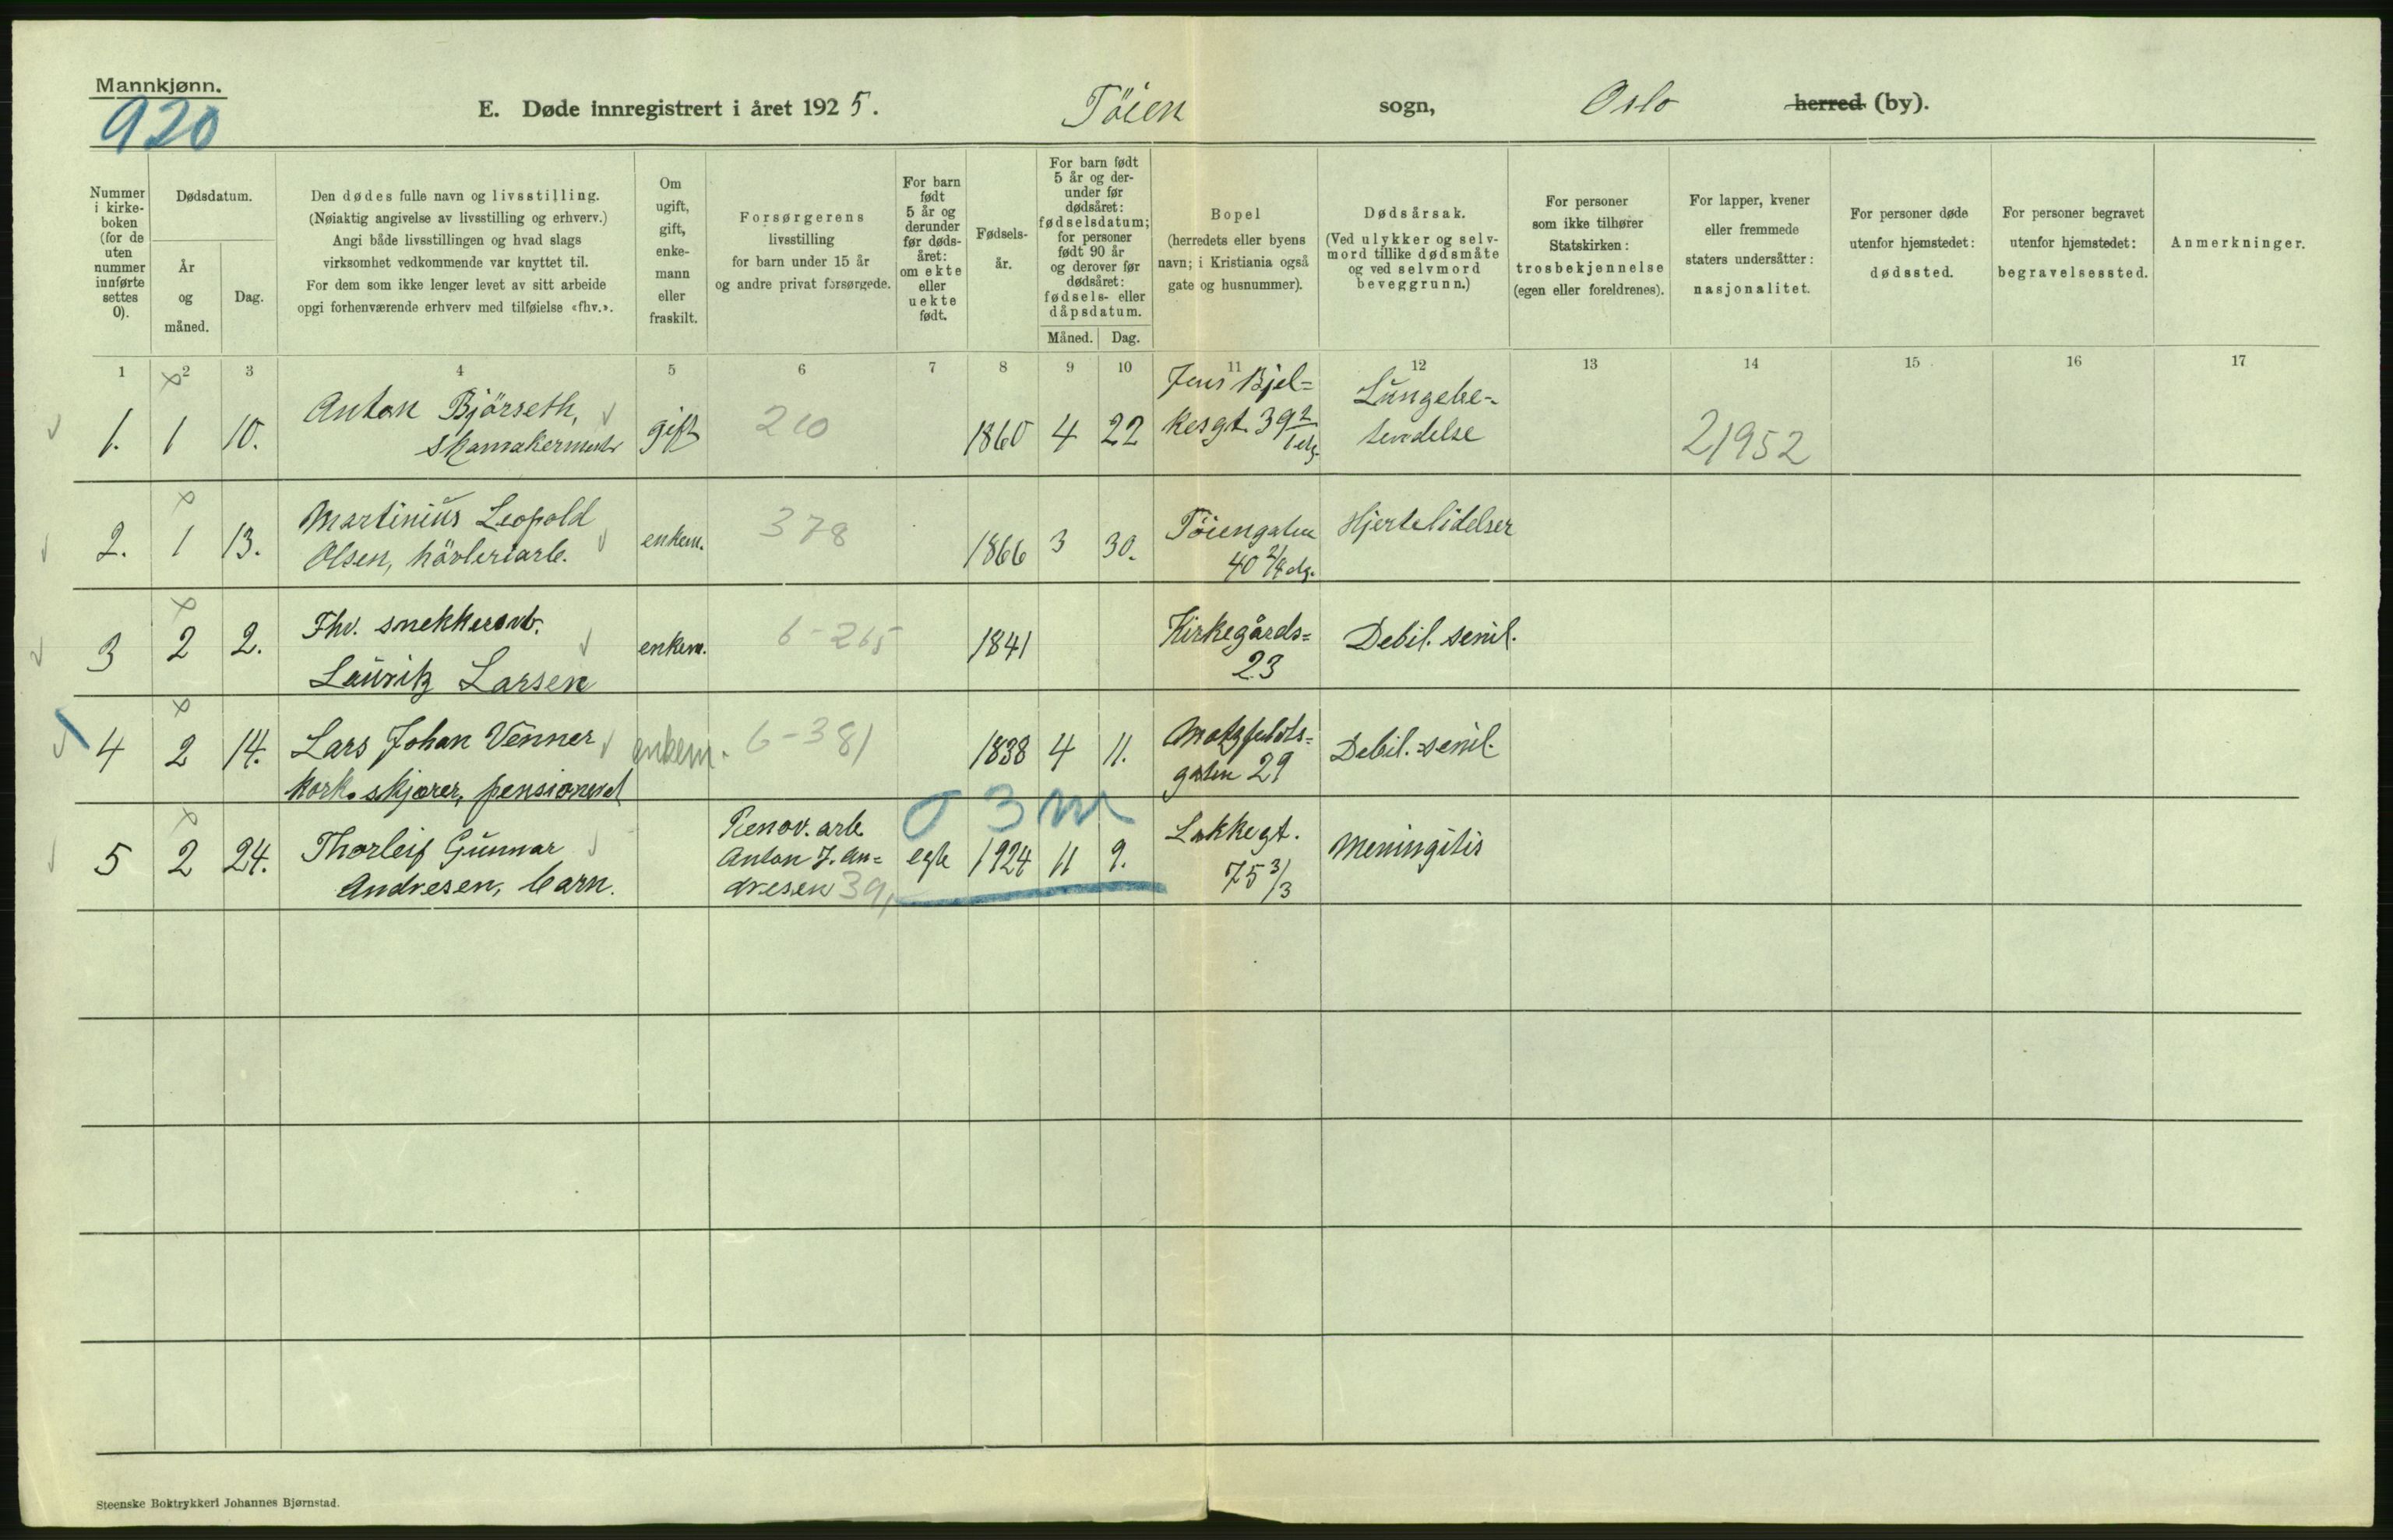 Mannkjønn.
920
E. Døde innregistrert i året 1925. Töien sogn, Oslo herred (by).
Nummer i kirke-boken (for de uten nummer innførte settes 0).
Dødsdatum.
År og måned.
Dag.
Den dødes fulle navn og livsstilling.
(Nøiaktig angivelse av livsstilling og erhverv.)
Angi både livsstillingen og hvad slags
virksomhet vedkommende var knyttet til.
For dem som ikke lenger levet av sitt arbeide
opgi forhenværende erhverv med tilføielse «fhv.».
Om ugift, gift, enke-mann eller fraskilt.
Forsørgerens
livsstilling
for barn under 15 år
og andre privat forsørgede.
For barn født 5 år og derunder før døds-året: om ekte eller uekte født.
Fødsels-år.
For barn født 5 år og der-under før dødsåret: fødselsdatum; for personer født 90 år og derover før dødsåret: fødsels- eller dåpsdatum.
Måned. Dag.
Bopel
(herredets eller byens
navn; i Kristiania også
gate og husnummer).
Dødsårsak.
(Ved ulykker og selv-
mord tillike dødsmåte
og ved selvmord
beveggrunn.)
For personer
som ikke tilhører
Statskirken:
trosbekjennelse
(egen eller foreldrenes).
For lapper, kvener
eller fremmede
staters undersåtter:
nasjonalitet.
For personer døde
utenfor hjemstedet:
dødssted.
For personer begravet
utenfor hjemstedet:
begravelsessted.
Anmerkninger.
1 2 3 4 5 6 7 8 9 10 11 12 13 14 15 16 17
1. 1 10. Anton Björseth, gift 210 1860 4 22 Jens Bjel= Lungebe-
skomakermester kesgt. 39 2/1 etg. tendelse 21952
2. 1 13. Martinius Leopold enkem. 378 1866 3 30. Töiengaten Hjertelidelser
Olsen, hövleriarb. 40 2/4 etg.
3 2 2. Fhv. snekkersvb. enkem. 6-265 1841 Kirkegårds= Debil. senil.
Lauritz Larsen 23
4 2 14. Lars Johan Venner enkem. 6-381 1838 4 11. Motzfeldts= Debil. senil.
kork.skjærer, pensioneret gaten 29
0 3 m
5 2 24. Thorleif Gunnar Renov. arb. egte 1924 11 9. Lakkegt. Meningitis
Andresen, barn. Anton J. An= 75 3/3
dresen 39,
Steenske Boktrykkeri Johannes Bjørnstad.